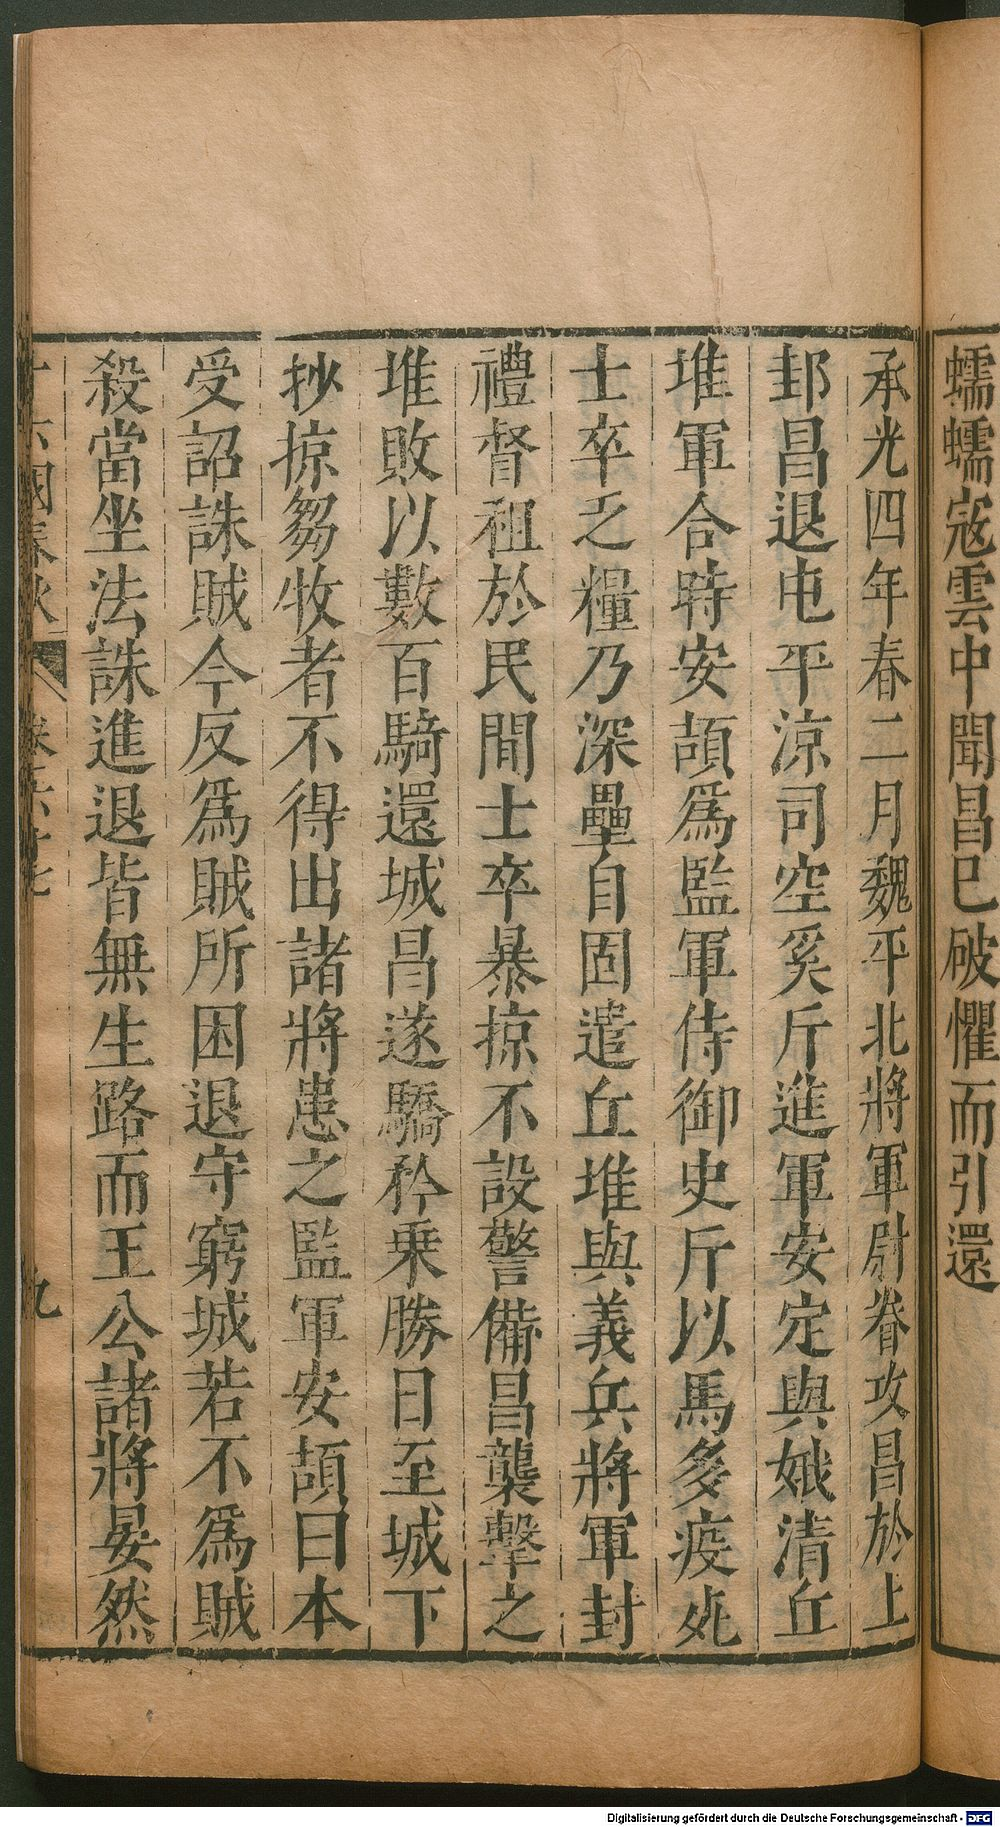 蠕蠕寇雲中聞昌巳破懼而引還
承光四年春二月魏平北將軍尉眷攻昌於上
邽昌退屯平涼司空奚斤進軍安定與娥清丘
堆軍合時安頡爲監軍侍御史斤以馬多疫死
士卒乏糧乃深壘自固遣丘堆與義兵將軍封
禮督租於民間士卒暴掠不設警備昌襲擊之
堆敗以數百騎還城昌遂驕矜乗勝日至城下
抄掠芻牧者不得出諸將患之監軍安頡曰本
受詔誅賊今反爲賊所困退守窮城若不爲賊
殺當坐法誅進退皆無生路而王公諸將晏然
十六國春秋 卷六十七 九
Digitalisierung gefördert durch die Deutsche Forschungsgemeinschaft - DFG